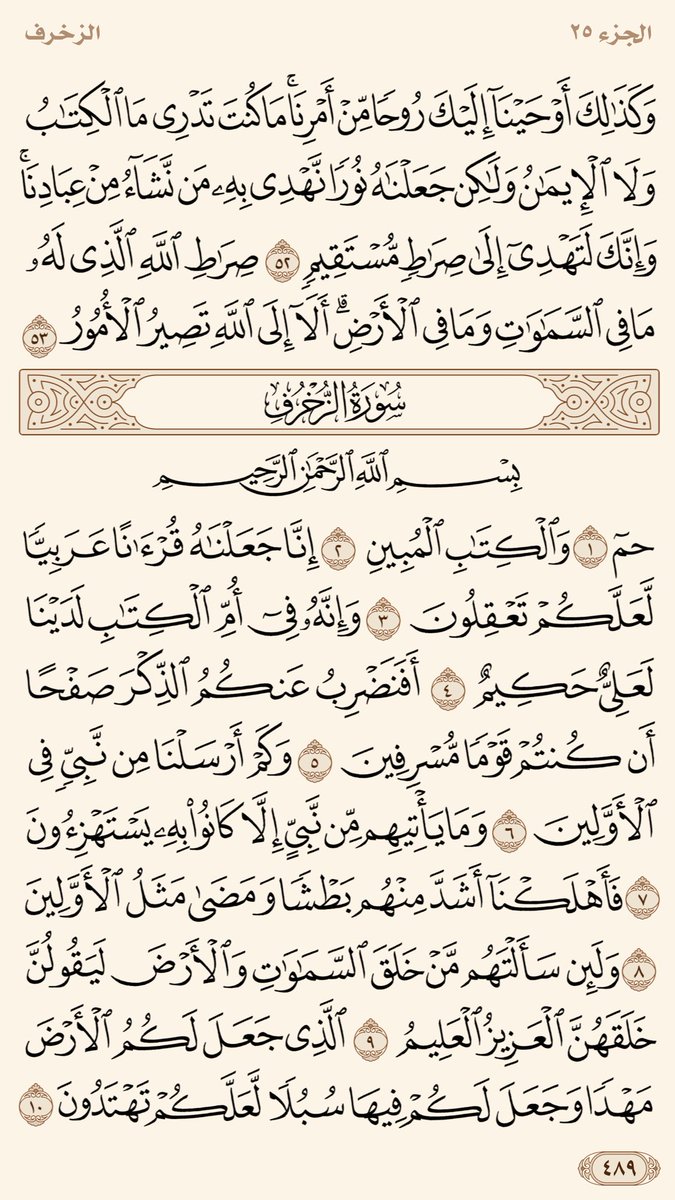 الجزء ٢٥
الزخرف
وَكَذَٰلِكَ أَوْحَيْنَآ إِلَيْكَ رُوحًا مِّنْ أَمْرِنَا ۚ مَا كُنتَ تَدْرِى مَا ٱلْكِتَـٰبُ
وَلَا ٱلْإِيمَـٰنُ وَلَـٰكِن جَعَلْنَـٰهُ نُورًا نَّهْدِى بِهِۦ مَن نَّشَآءُ مِنْ عِبَادِنَا ۚ
وَإِنَّكَ لَتَهْدِىٓ إِلَىٰ صِرَٰطٍ مُّسْتَقِيمٍ ٥٢ صِرَٰطِ ٱللَّهِ ٱلَّذِى لَهُۥ
مَا فِى ٱلسَّمَـٰوَٰتِ وَمَا فِى ٱلْأَرْضِ ۗ أَلَآ إِلَى ٱللَّهِ تَصِيرُ ٱلْأُمُورُ ٥٣
سُورَةُ الزُّخْرُفِ
بِسْمِ ٱللَّهِ ٱلرَّحْمَـٰنِ ٱلرَّحِيمِ
حمٓ ١ وَٱلْكِتَـٰبِ ٱلْمُبِينِ ٢ إِنَّا جَعَلْنَـٰهُ قُرْءَٰنًا عَرَبِيًّا
لَّعَلَّكُمْ تَعْقِلُونَ ٣ وَإِنَّهُۥ فِىٓ أُمِّ ٱلْكِتَـٰبِ لَدَيْنَا
لَعَلِىٌّ حَكِيمٌ ٤ أَفَنَضْرِبُ عَنكُمُ ٱلذِّكْرَ صَفْحًا
أَن كُنتُمْ قَوْمًا مُّسْرِفِينَ ٥ وَكَمْ أَرْسَلْنَا مِن نَّبِىٍّ فِى
ٱلْأَوَّلِينَ ٦ وَمَا يَأْتِيهِم مِّن نَّبِىٍّ إِلَّا كَانُوا۟ بِهِۦ يَسْتَهْزِءُونَ
٧ فَأَهْلَكْنَآ أَشَدَّ مِنْهُم بَطْشًا وَمَضَىٰ مَثَلُ ٱلْأَوَّلِينَ
٨ وَلَئِن سَأَلْتَهُم مَّنْ خَلَقَ ٱلسَّمَـٰوَٰتِ وَٱلْأَرْضَ لَيَقُولُنَّ
خَلَقَهُنَّ ٱلْعَزِيزُ ٱلْعَلِيمُ ٩ ٱلَّذِى جَعَلَ لَكُمُ ٱلْأَرْضَ
مَهْدًا وَجَعَلَ لَكُمْ فِيهَا سُبُلًا لَّعَلَّكُمْ تَهْتَدُونَ ١٠
٤٨٩